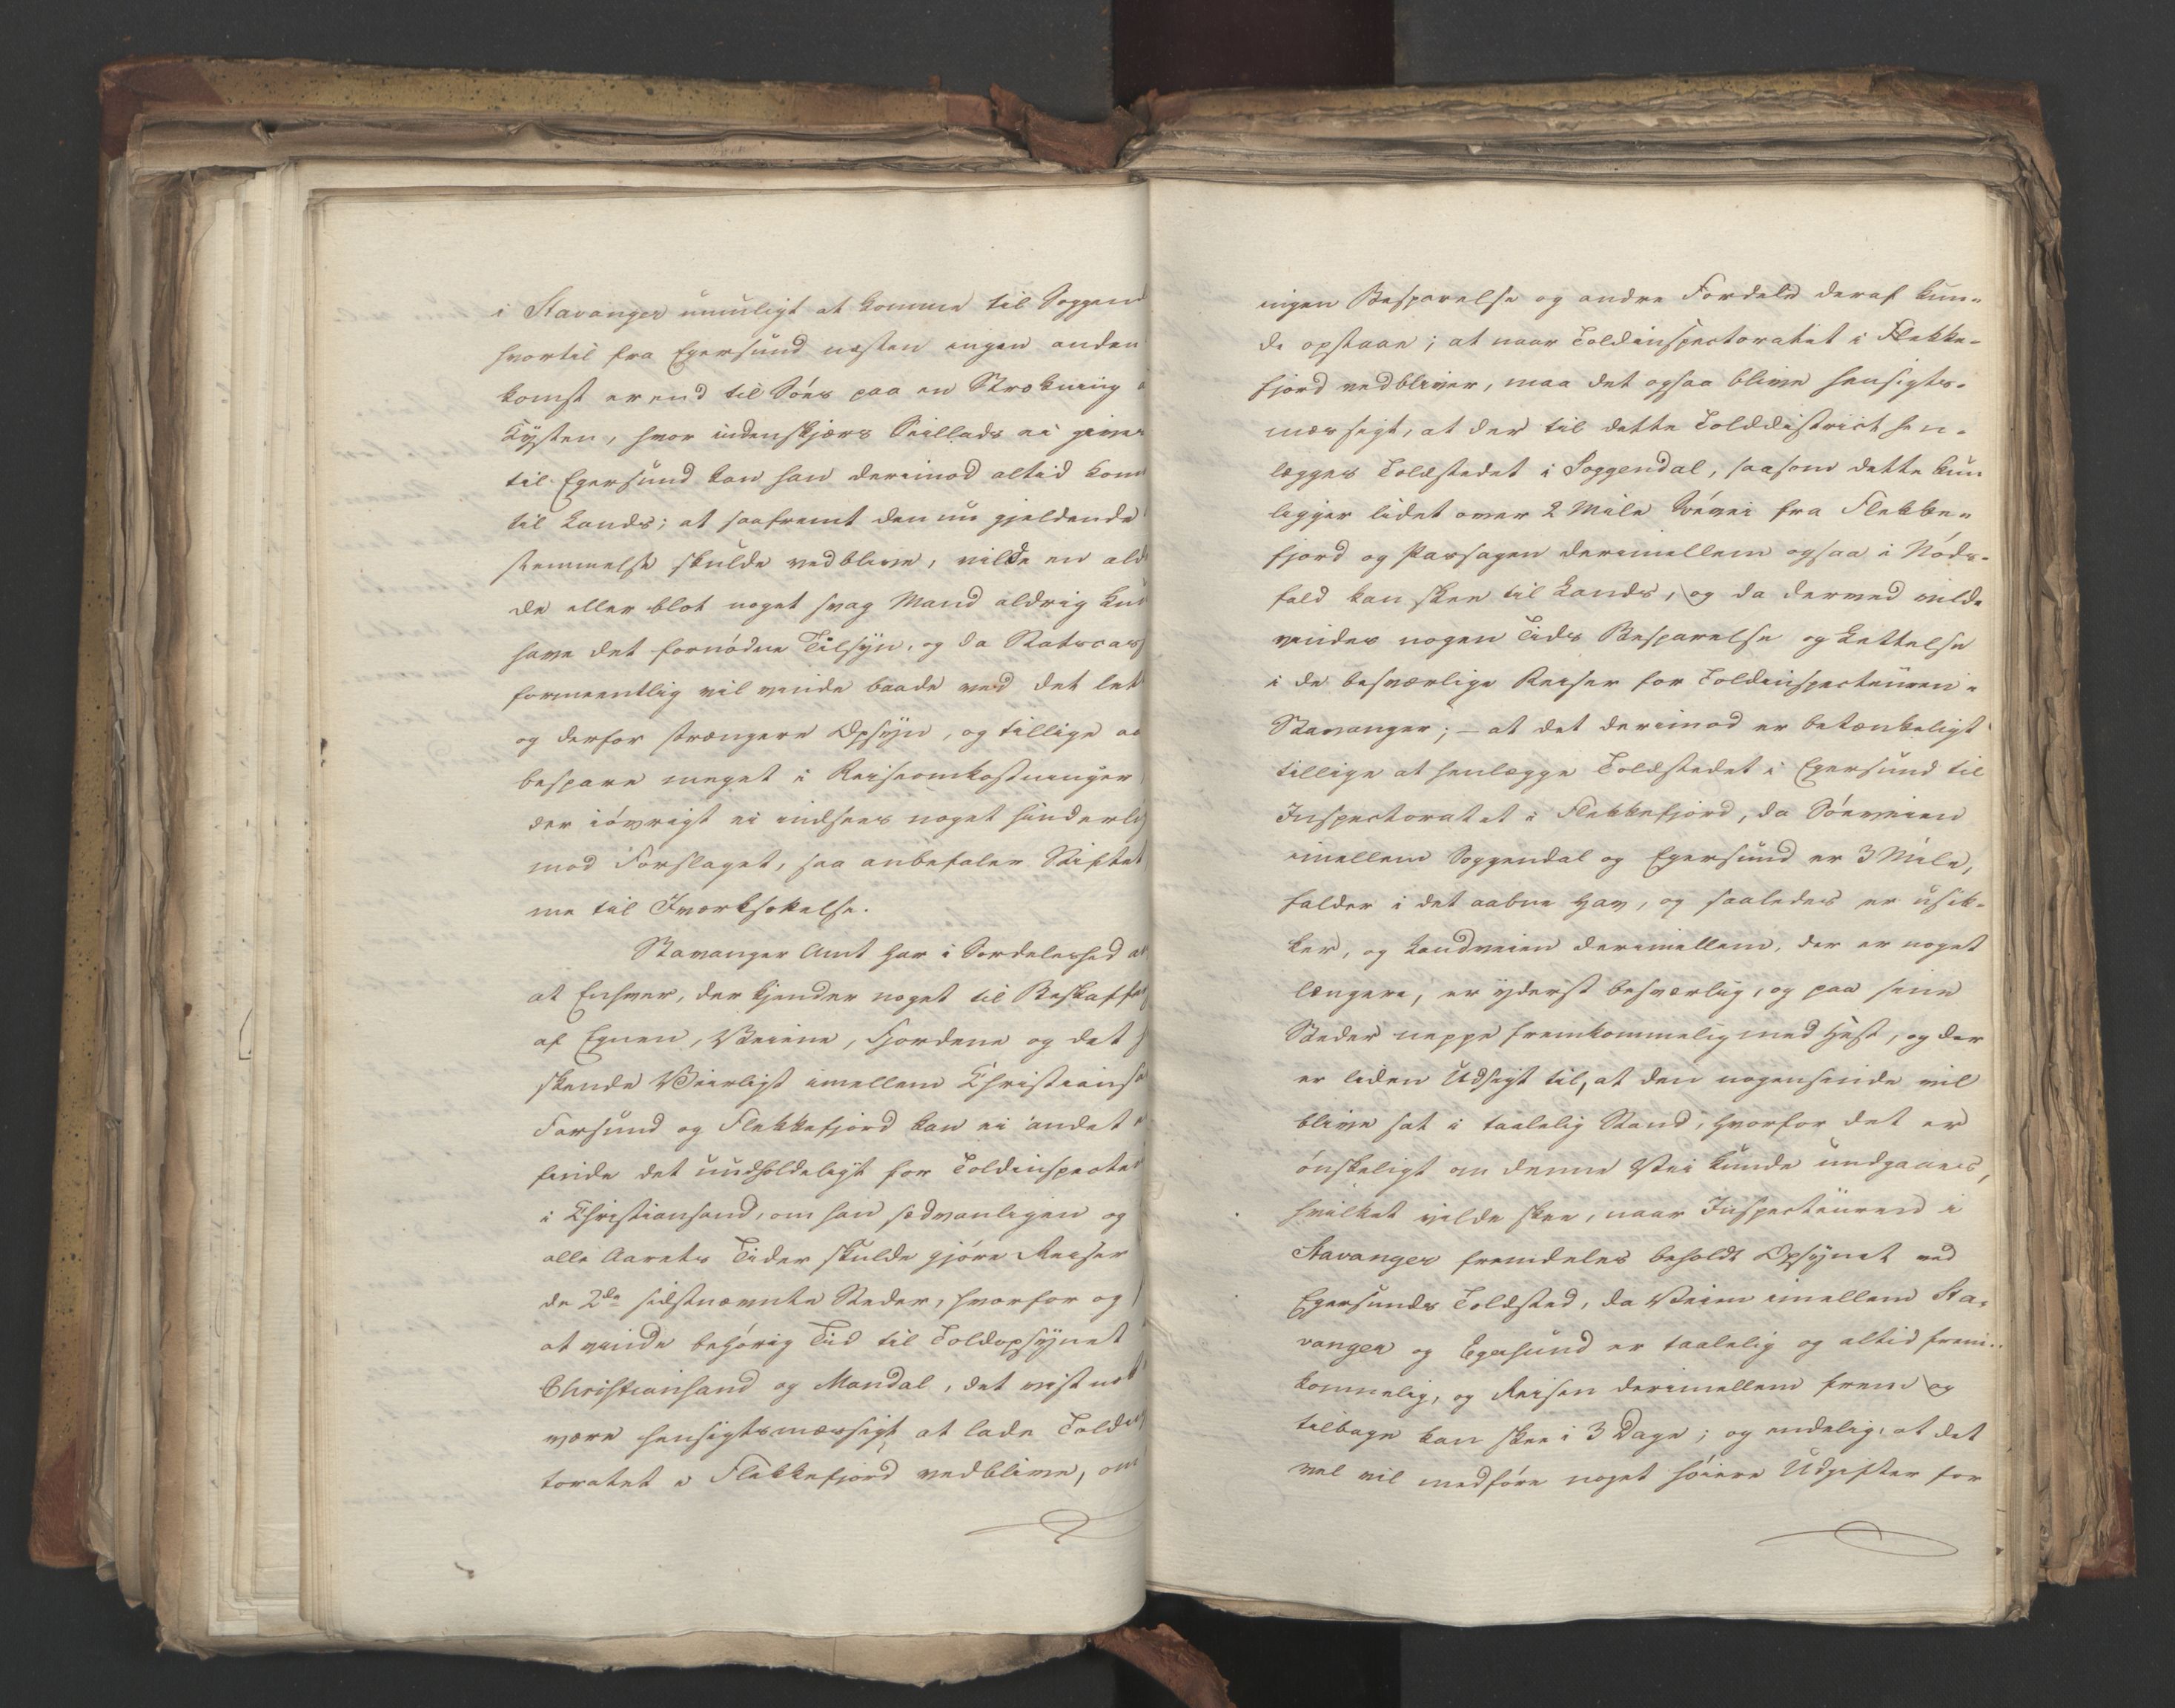 i Stavanger umuligt at komme til Soggend
hvortil fra Egersund næsten ingen anden
komst er end til Søes paa en Strækning a
Kysten, hvor indenskjærs Seillads ei gives
til Egersund kan han derimod altid kom
til Lands; at saafremt den nu gjeldende
stemmelse skulde vedblive, vilde en ald
de eller blot noget svag Mand aldrig kun
have det fornødne Tilsyn, og da Statscas
formeentlig vil vinde baade ved det let
og derfor strængere Opsyn, og tillige
bespare meget i Reiseomkostninger
der iøvrigt ei indsees noget hinderlig
mod Forslaget, saa anbefaler Stiftet
me til Iværksættelse.
Stavanger Amt har i Særdeleshed
at Enhver, der kjender noget til Beskaffen
af Egnen, Veiene, Fjordene og det
skende Veirligt imellem Christiansa
Farsund og Flekkefjord kan ei andet
finde det uudholdeligt for Toldinspecteu
i Christiansand, om han sædvanligen og
alle Aarets Tider skulde gjøre Reiser
de 2de sidstnævnte Steder, hvorfor og
at vinde behørig Tid til Toldopsynet
Christiansand og Mandal, det vist nok
være hensigtsmæssigt at lade Toldin
toratet i Flekkefjord vedblive, om
ingen Besparelse og andre Fordele deraf kun-
de opstaae; at naar Toldinspectoratet i Flekke-
fjord vedbliver, maa det ogsaa blive hensigts-
mæssigt, at der til dette Tolddistrict hen-
lægges Toldstedet i Soggendal, saasom dette kun
ligger lidet over 2 Mile Søvei fra Flekke-
fjord og Passagen derimellem ogsaa i Nøds-
fald kan skee til Lands, og da derved vilde
vindes nogen Tids Besparelse og Lettelse
i de besværlige Reiser for Toldinspecteuren i
Stavanger; – at det derimod er betænkeligt
tillige at henlægge Toldstedet i Egersund til
Inspectoratet i Flekkefjord, da Søeveien
imellem Soggendal og Egersund er 3 Mile,
falder i det aabne Hav, og saaledes er usik-
ker, og Landveien derimellem, der er noget
længere, er yderst besværlig, og paa sine
Steder neppe fremkommelig med Hest, og der
er liden Udsigt til, at den nogensinde vil
blive sat i taalelig Stand, hvorfor det er
ønskeligt om denne Vei kunde undgaaes,
hvilket vilde skee, naar Inspecteuren i
Stavanger fremdeles beholdt Opsynet ved
Egersunds Toldsted, da Veien imellem Sta-
vanger og Egersund er taalelig og altid frem-
kommelig, og Reisen derimellem frem og
tilbage kan skee i 3 Dage; og endelig, at det
vel vil medføre noget høiere Udgifter for